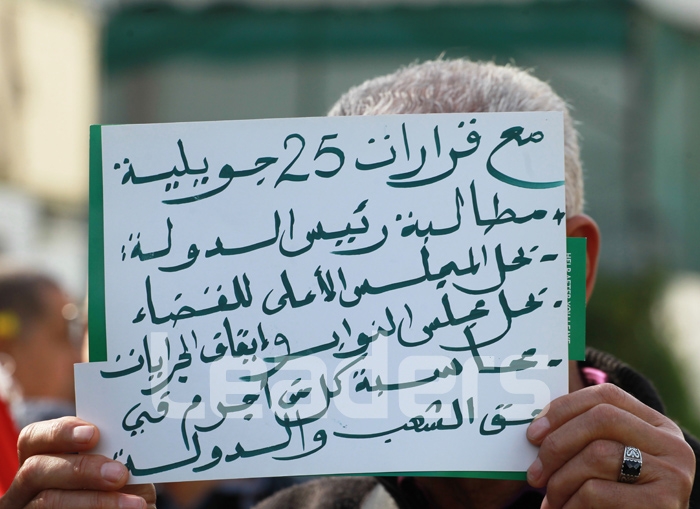 مع قرارات 25 جويلية
+ مطالبة رئيس الدولة:
- بحل المجلس الأعلى للقضاء
- بحل مجلس النواب وإيقاف الجرايات
- بمحاسبة كل من أجرم في
حق الشعب والدولة
Leaders